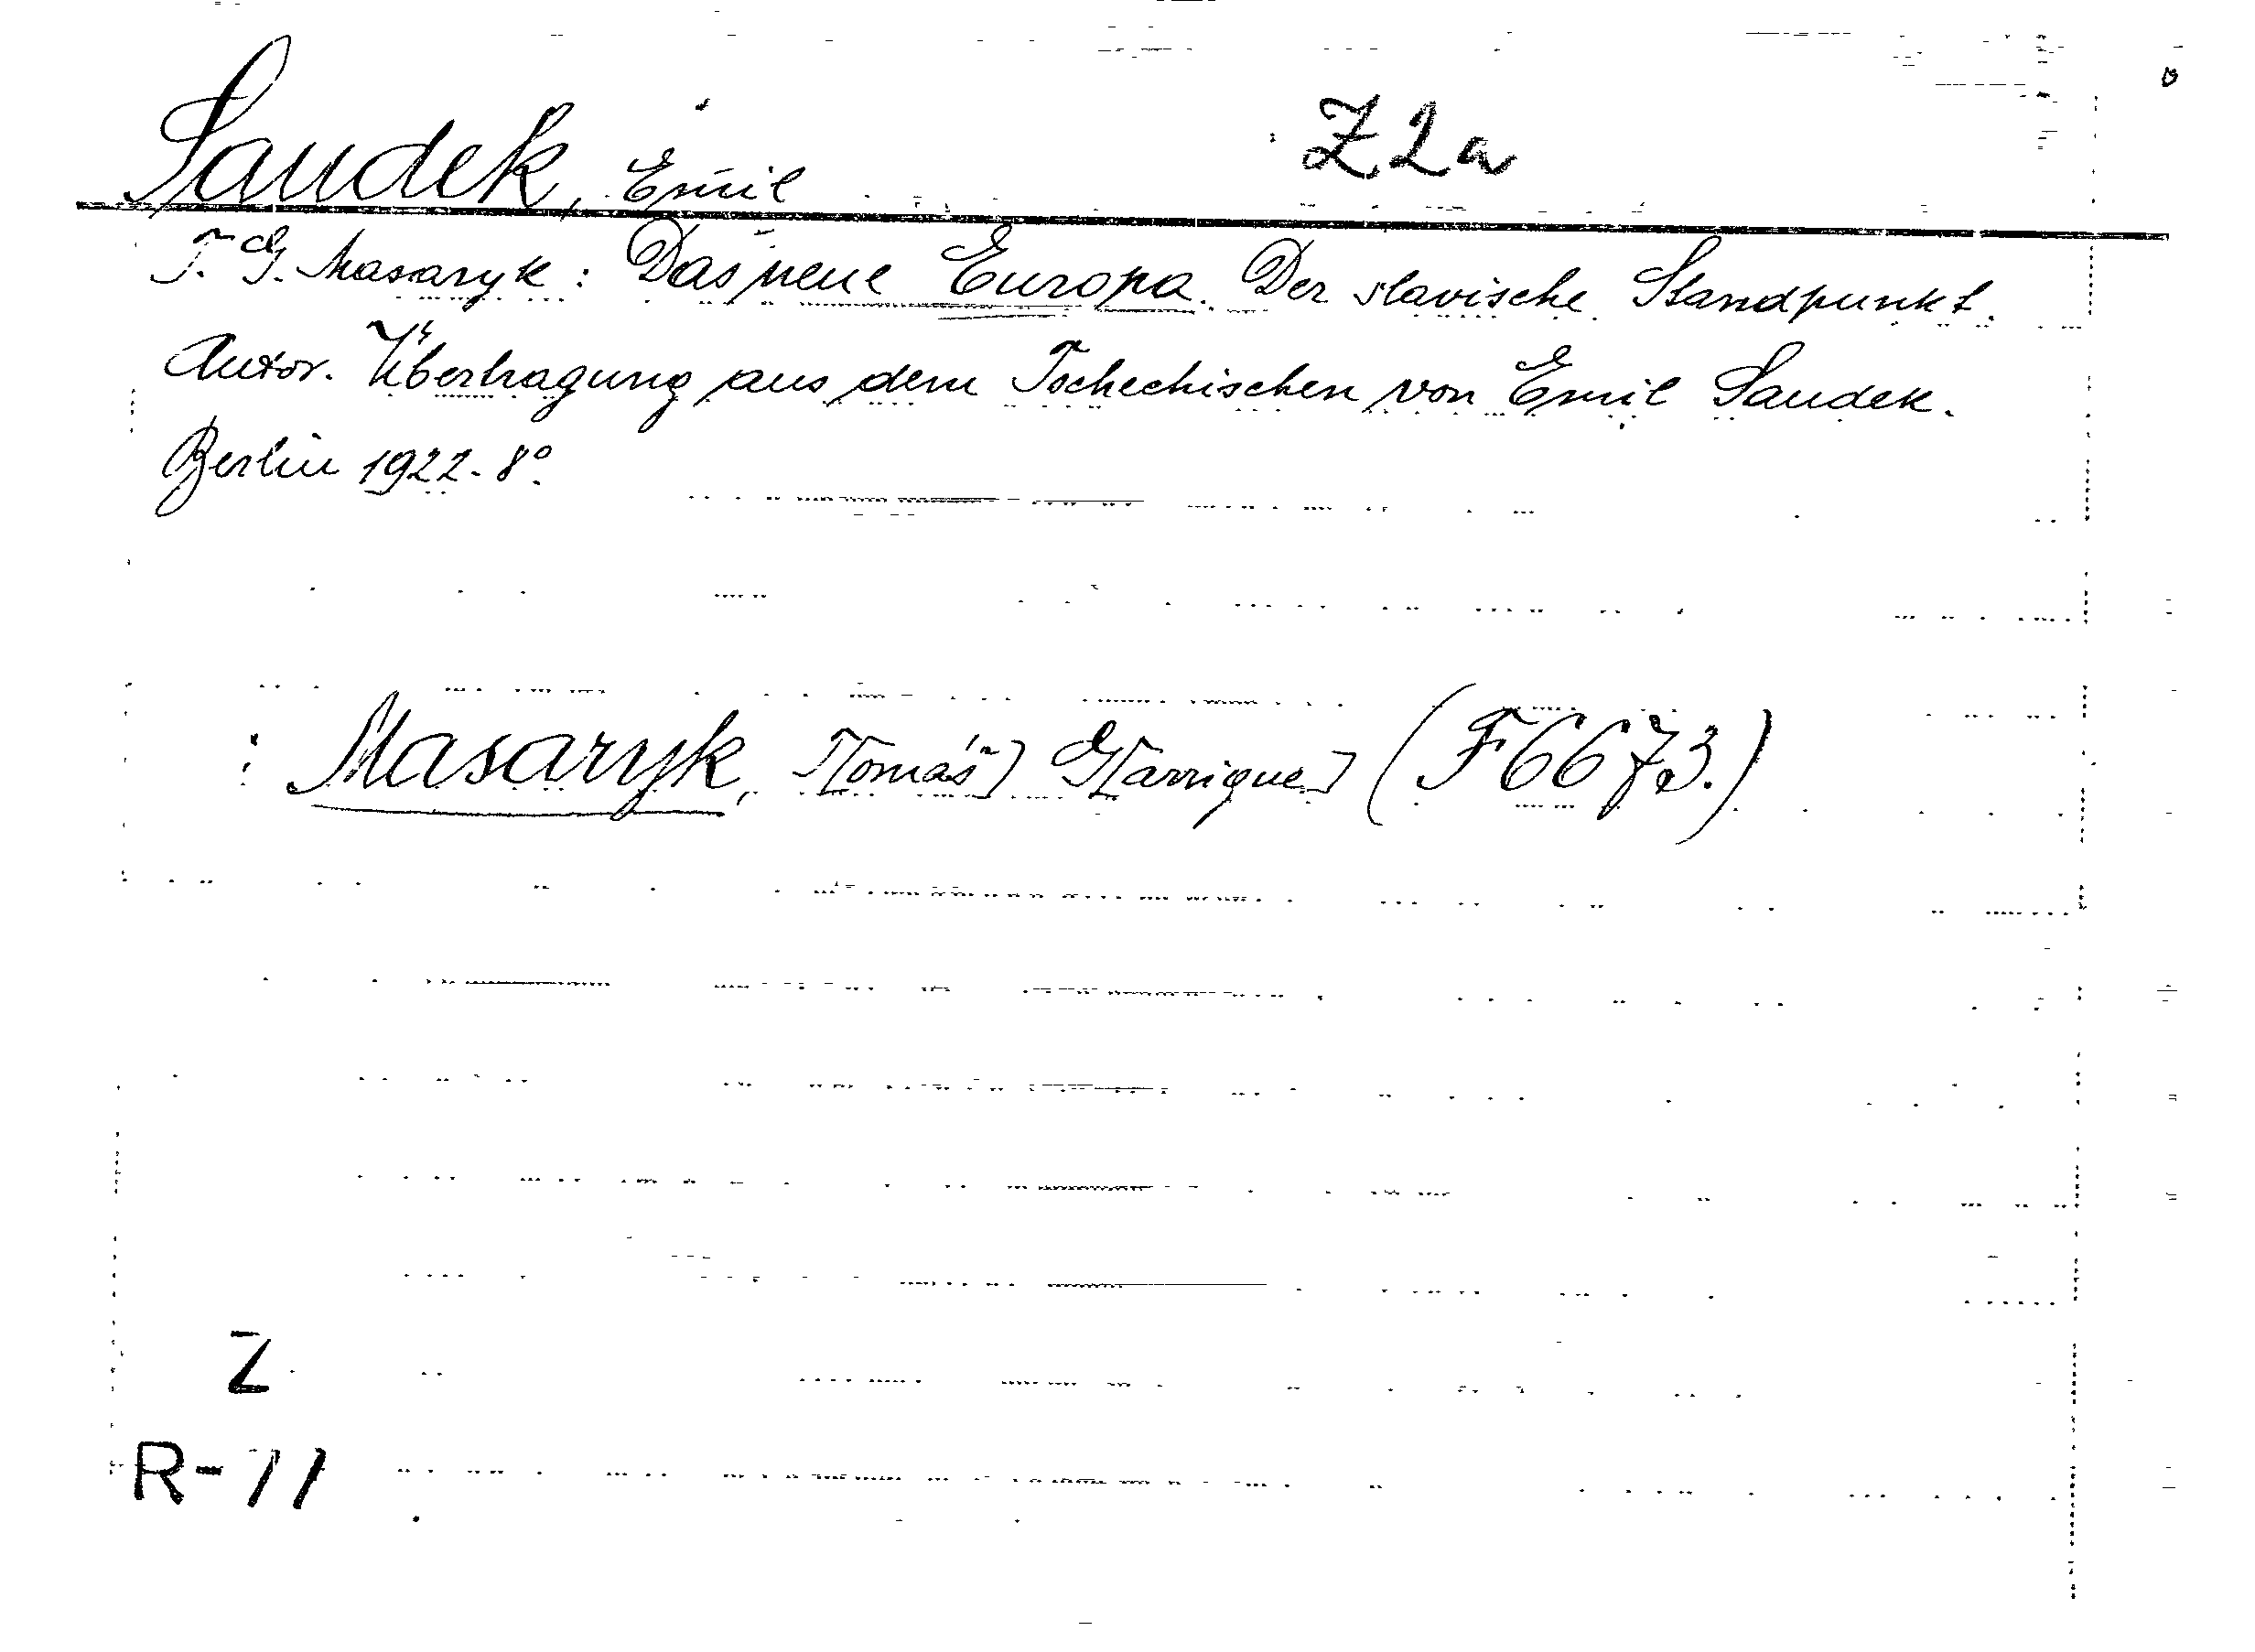 Saudek, Emil Z 2a
T. G. Masaryk: Das neue Europa. Der slavische Standpunkt.
Autor. Übertragung aus dem Tschechischen von Emil Saudek.
Berlin 1922. 8°.
: Masaryk, T[omáš] G[arrigue] (F 6673.)
Z
R-71